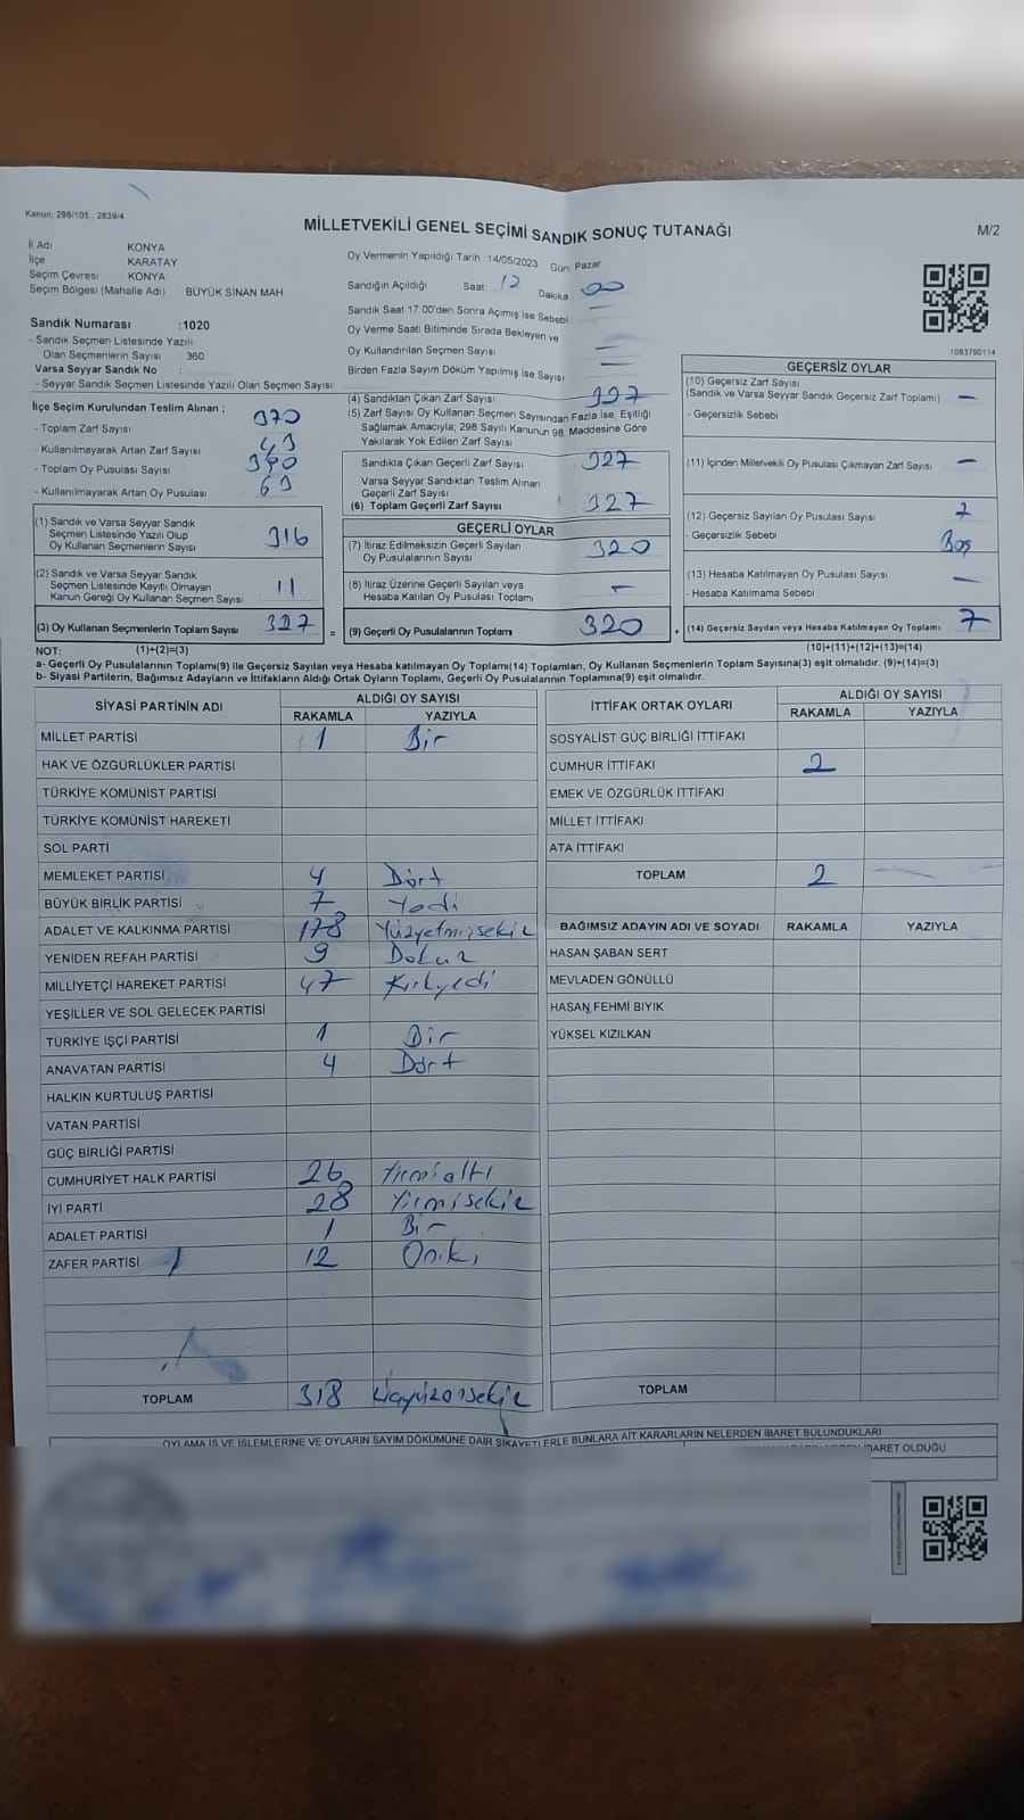 Kanun: 298/105 , 2839/4
MİLLETVEKİLİ GENEL SEÇİMİ SANDIK SONUÇ TUTANAĞI
M/2
İl Adı KONYA
İlçe KARATAY
Seçim Çevresi KONYA
Seçim Bölgesi (Mahalle Adı) BÜYÜK SİNAN MAH
Sandık Numarası :1020
- Sandık Seçmen Listesinde Yazılı
Olan Seçmenlerin Sayısı 360
Varsa Seyyar Sandık No :
- Seyyar Sandık Seçmen Listesinde Yazılı Olan Seçmen Sayısı
İlçe Seçim Kurulundan Teslim Alınan ;
- Toplam Zarf Sayısı 370
- Kullanılmayarak Artan Zarf Sayısı 43
- Toplam Oy Pusulası Sayısı 390
- Kullanılmayarak Artan Oy Pusulası 63
(1) Sandık ve Varsa Seyyar Sandık
Seçmen Listesinde Yazılı Olup
Oy Kullanan Seçmenlerin Sayısı 316
(2) Sandık ve Varsa Seyyar Sandık
Seçmen Listesinde Kayıtlı Olmayan
Kanun Gereği Oy Kullanan Seçmen Sayısı 11
(3) Oy Kullanan Seçmenlerin Toplam Sayısı 327 =
Oy Vermenin Yapıldığı Tarih :14/05/2023 Gün: Pazar
Sandığın Açıldığı Saat: 12 Dakika 00
Sandık Saat 17:00'den Sonra Açılmış İse Sebebi :
Oy Verme Saati Bitiminde Sırada Bekleyen ve
Oy Kullandırılan Seçmen Sayısı
Birden Fazla Sayım Döküm Yapılmış İse Sayısı
(4) Sandıktan Çıkan Zarf Sayısı 327
(5) Zarf Sayısı Oy Kullanan Seçmen Sayısından Fazla İse, Eşitliği
Sağlamak Amacıyla; 298 Sayılı Kanunun 98. Maddesine Göre
Yakılarak Yok Edilen Zarf Sayısı
Sandıkta Çıkan Geçerli Zarf Sayısı 327
Varsa Seyyar Sandıktan Teslim Alınan
Geçerli Zarf Sayısı
(6) Toplam Geçerli Zarf Sayısı 327
GEÇERLİ OYLAR
(7) İtiraz Edilmeksizin Geçerli Sayılan
Oy Pusulalarının Sayısı 320
(8) İtiraz Üzerine Geçerli Sayılan veya
Hesaba Katılan Oy Pusulası Toplamı –
(9) Geçerli Oy Pusulalarının Toplamı 320 +
1083790114
GEÇERSİZ OYLAR
(10) Geçersiz Zarf Sayısı
(Sandık ve Varsa Seyyar Sandık Geçersiz Zarf Toplamı) –
- Geçersizlik Sebebi
(11) İçinden Milletvekili Oy Pusulası Çıkmayan Zarf Sayısı –
(12) Geçersiz Sayılan Oy Pusulası Sayısı 7
- Geçersizlik Sebebi Boş
(13) Hesaba Katılmayan Oy Pusulası Sayısı –
- Hesaba Katılmama Sebebi
(14) Geçersiz Sayılan veya Hesaba Katılmayan Oy Toplamı 7
NOT: (1)+(2)=(3) (10)+(11)+(12)+(13)=(14)
a- Geçerli Oy Pusulalarının Toplamı(9) ile Geçersiz Sayılan veya Hesaba katılmayan Oy Toplamı(14) Toplamları, Oy Kullanan Seçmenlerin Toplam Sayısına(3) eşit olmalıdır. (9)+(14)=(3)
b- Siyasi Partilerin, Bağımsız Adayların ve İttifakların Aldığı Ortak Oyların Toplamı, Geçerli Oy Pusulalarının Toplamına(9) eşit olmalıdır.
SİYASİ PARTİNİN ADI ALDIĞI OY SAYISI
RAKAMLA YAZIYLA
MİLLET PARTİSİ 1 Bir
HAK VE ÖZGÜRLÜKLER PARTİSİ
TÜRKİYE KOMÜNİST PARTİSİ
TÜRKİYE KOMÜNİST HAREKETİ
SOL PARTİ
MEMLEKET PARTİSİ 4 Dört
BÜYÜK BİRLİK PARTİSİ 7 Yedi
ADALET VE KALKINMA PARTİSİ 178 Yüzyetmişsekiz
YENİDEN REFAH PARTİSİ 9 Dokuz
MİLLİYETÇİ HAREKET PARTİSİ 47 Kırkyedi
YEŞİLLER VE SOL GELECEK PARTİSİ
TÜRKİYE İŞÇİ PARTİSİ 1 Bir
ANAVATAN PARTİSİ 4 Dört
HALKIN KURTULUŞ PARTİSİ
VATAN PARTİSİ
GÜÇ BİRLİĞİ PARTİSİ
CUMHURİYET HALK PARTİSİ 26 Yirmialtı
İYİ PARTİ 28 Yirmisekiz
ADALET PARTİSİ 1 Bir
ZAFER PARTİSİ 12 Oniki
TOPLAM 318 Üçyüzonsekiz
İTTİFAK ORTAK OYLARI ALDIĞI OY SAYISI
RAKAMLA YAZIYLA
SOSYALİST GÜÇ BİRLİĞİ İTTİFAKI
CUMHUR İTTİFAKI 2
EMEK VE ÖZGÜRLÜK İTTİFAKI
MİLLET İTTİFAKI
ATA İTTİFAKI
TOPLAM 2
BAĞIMSIZ ADAYIN ADI VE SOYADI RAKAMLA YAZIYLA
HASAN ŞABAN SERT
MEVLADEN GÖNÜLLÜ
HASAN FEHMİ BIYIK
YÜKSEL KIZILKAN
TOPLAM
OYLAMA İŞ VE İŞLEMLERİNE VE OYLARIN SAYIM DÖKÜMÜNE DAİR ŞİKAYETLERLE BUNLARA AİT KARARLARIN NELERDEN İBARET BULUNDUKLARI
İBARET OLDUĞU